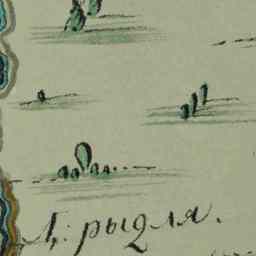 Д: рыдля.